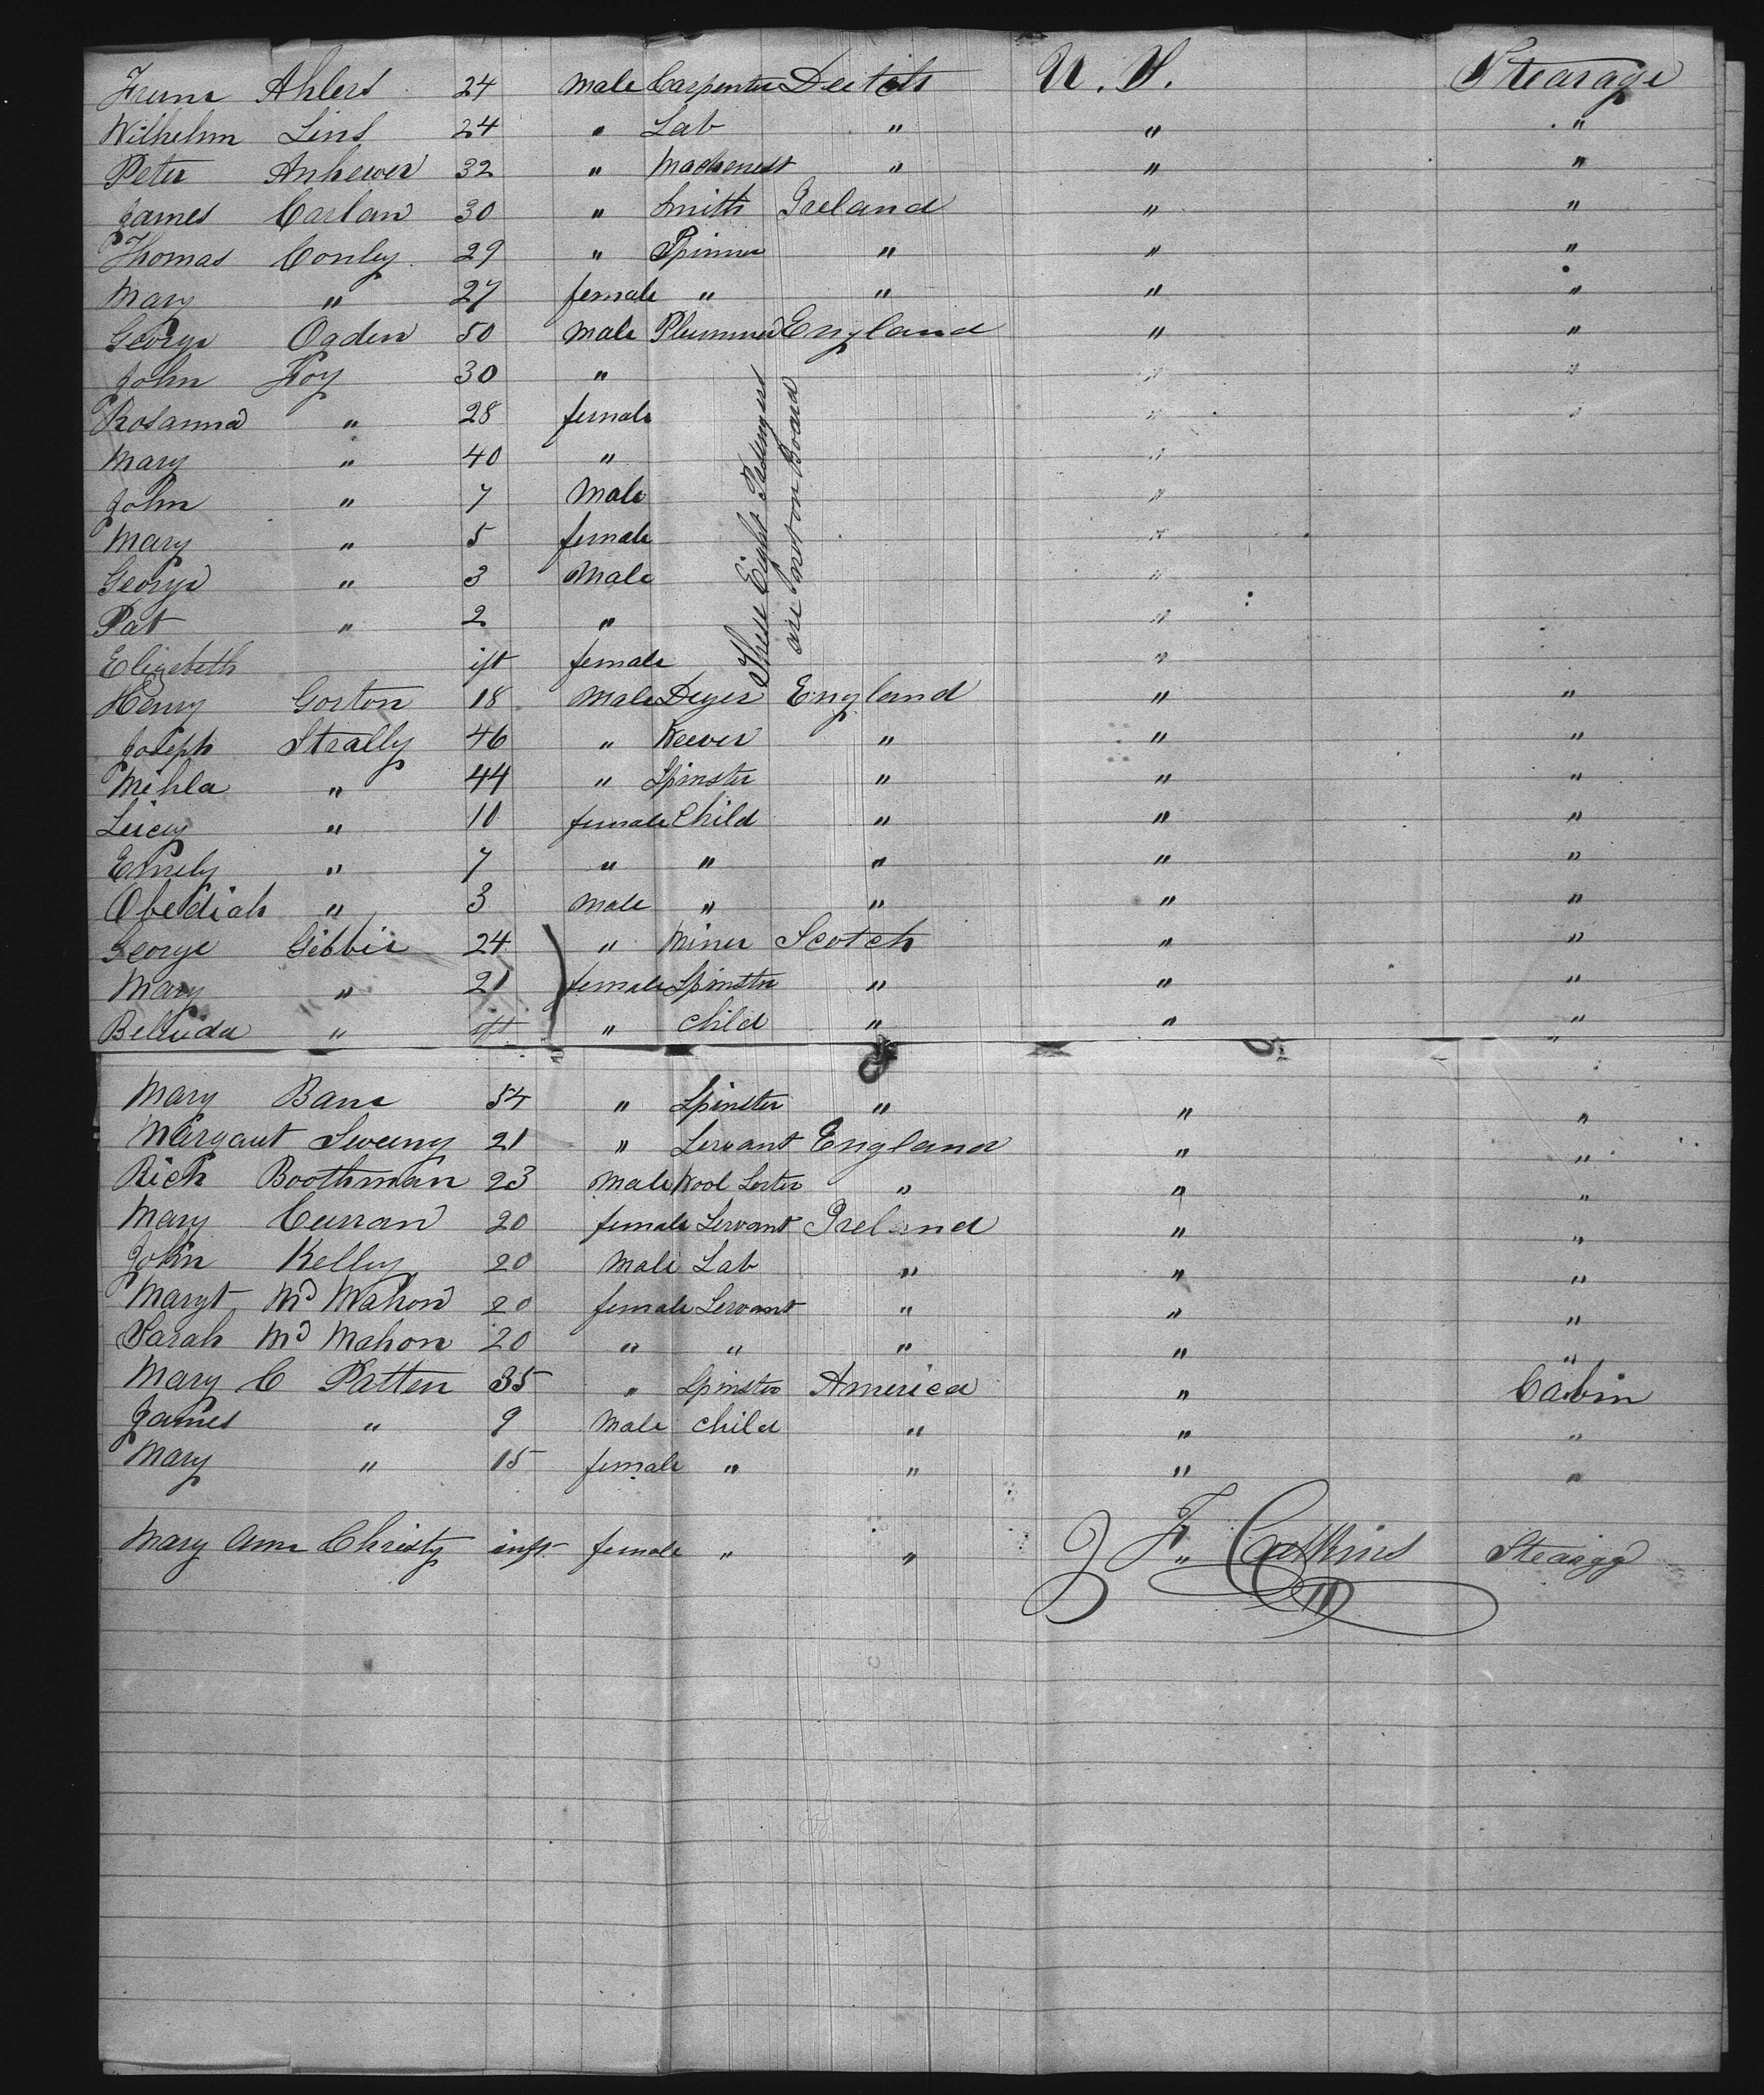 Ahlers 24 Male Carpenter Deutch U. S. Stearage
Wilhelm Lins 24 " Lab " " "
Peter Anhewer 32 " Machenest " " "
James Carlan 30 " Smith Ireland " "
Thomas Conley 29 " Spinner " " "
Mary " 27 female " " " "
George Ogden 50 Male Plummer England " "
John Foy 30 " " "
Rosanna " 28 female " "
Mary " 40 " "
John " 7 Male "
Mary " 5 female "
George " 3 Male "
Pat " 2 " "
Elizebeth ift female "
These Eight Passengers
are not on Board
Henry Gorton 18 Male Deyer England " "
Joseph Strally 46 " Weever " " "
Mihla " 44 " Spinster " " "
Lucy " 10 female Child " " "
Emely " 7 " " " " "
Obediah " 3 Male " " " "
George Gibbie 24 " Miner Scotch " "
Mary " 21 female Spinster " " "
Belinda " ift " child " " "
Mary Bane 54 " Spinster " " "
Margaut Sweeny 21 " Servant England " "
Rich Boothman 23 Male Wool Sorter " " "
Mary Curran 20 female Servant Ireland " "
John Kelley 20 Male Lab " " "
Margt Mc Mahon 20 female Servant " " "
Sarah Mc Mahon 20 " " " " "
Mary C Patten 35 " Spinster America " Cabin
James " 9 Male child " " "
Mary " 15 female " " " "
Mary Ann Christy inft female " " " Steargg